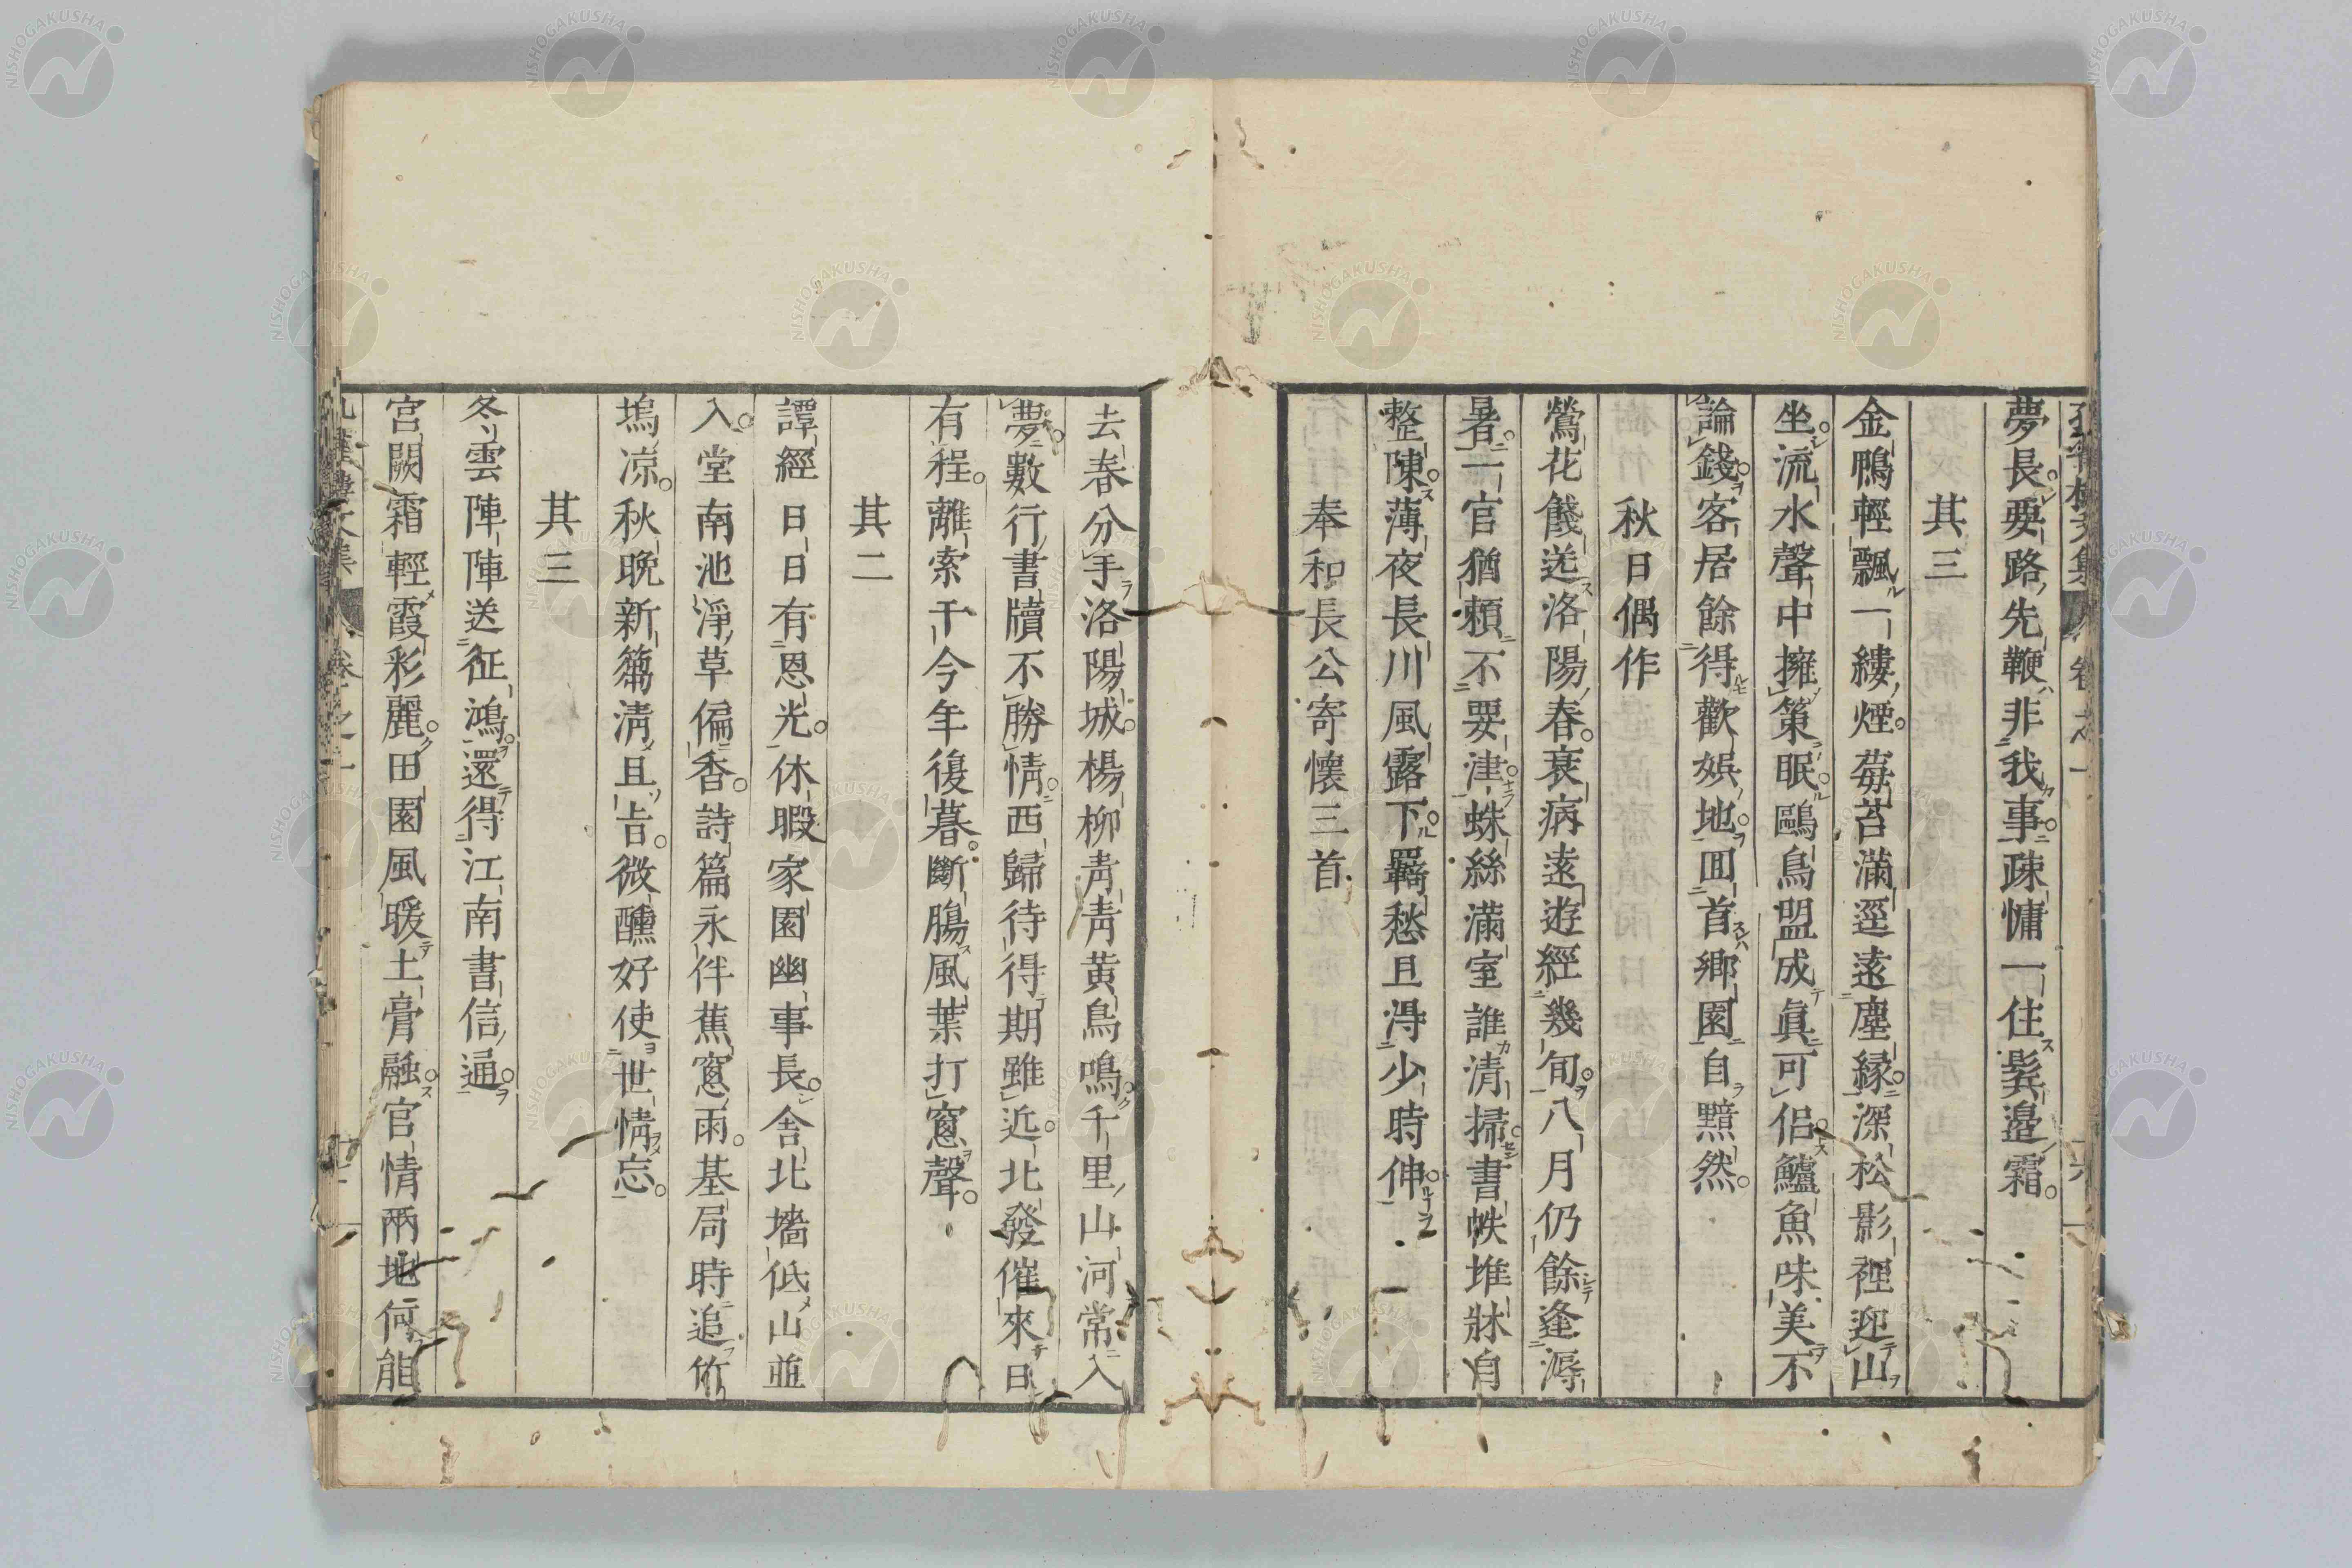 夢長要路先鞭非我事疎慵一住鬂邉霜
其三
金鴨輕飄一縷煙莓苔滿逕遠塵縁深松影裡迎山
坐流水聲中擁策眠鷗鳥盟成眞可侶鱸魚味美不
論錢客居餘得歡娯地囬首鄉園自黯然
秋日偶作
鶯花餞送洛陽春衰病遠遊經幾旬八月仍餘逢溽
暑一官猶頼不要津蛛絲滿室誰清掃書帙堆牀自
整陳薄夜長川風露下羈愁且得少時伸
奉和長公寄懷三首
去春分手洛陽城楊柳青青黄鳥鳴千里山河常入
夢數行書牘不勝情西歸待得期雖近北發催來日
有程離索千今年復暮斷膓風葉打窓聲
其二
譚經日日有恩光休暇家園幽事長舎北墻低山並
入堂南池淨草偏香詩篇永伴蕉窓雨基局時追竹
塢凉秋晩新篘淸且旨微醺好使世情忘
其三
冬雲陣陣送征鴻還得江南書信通
宮闕霜輕霞彩麗田園風暖土膏融官情兩地何能
NISHOGAKUSHA